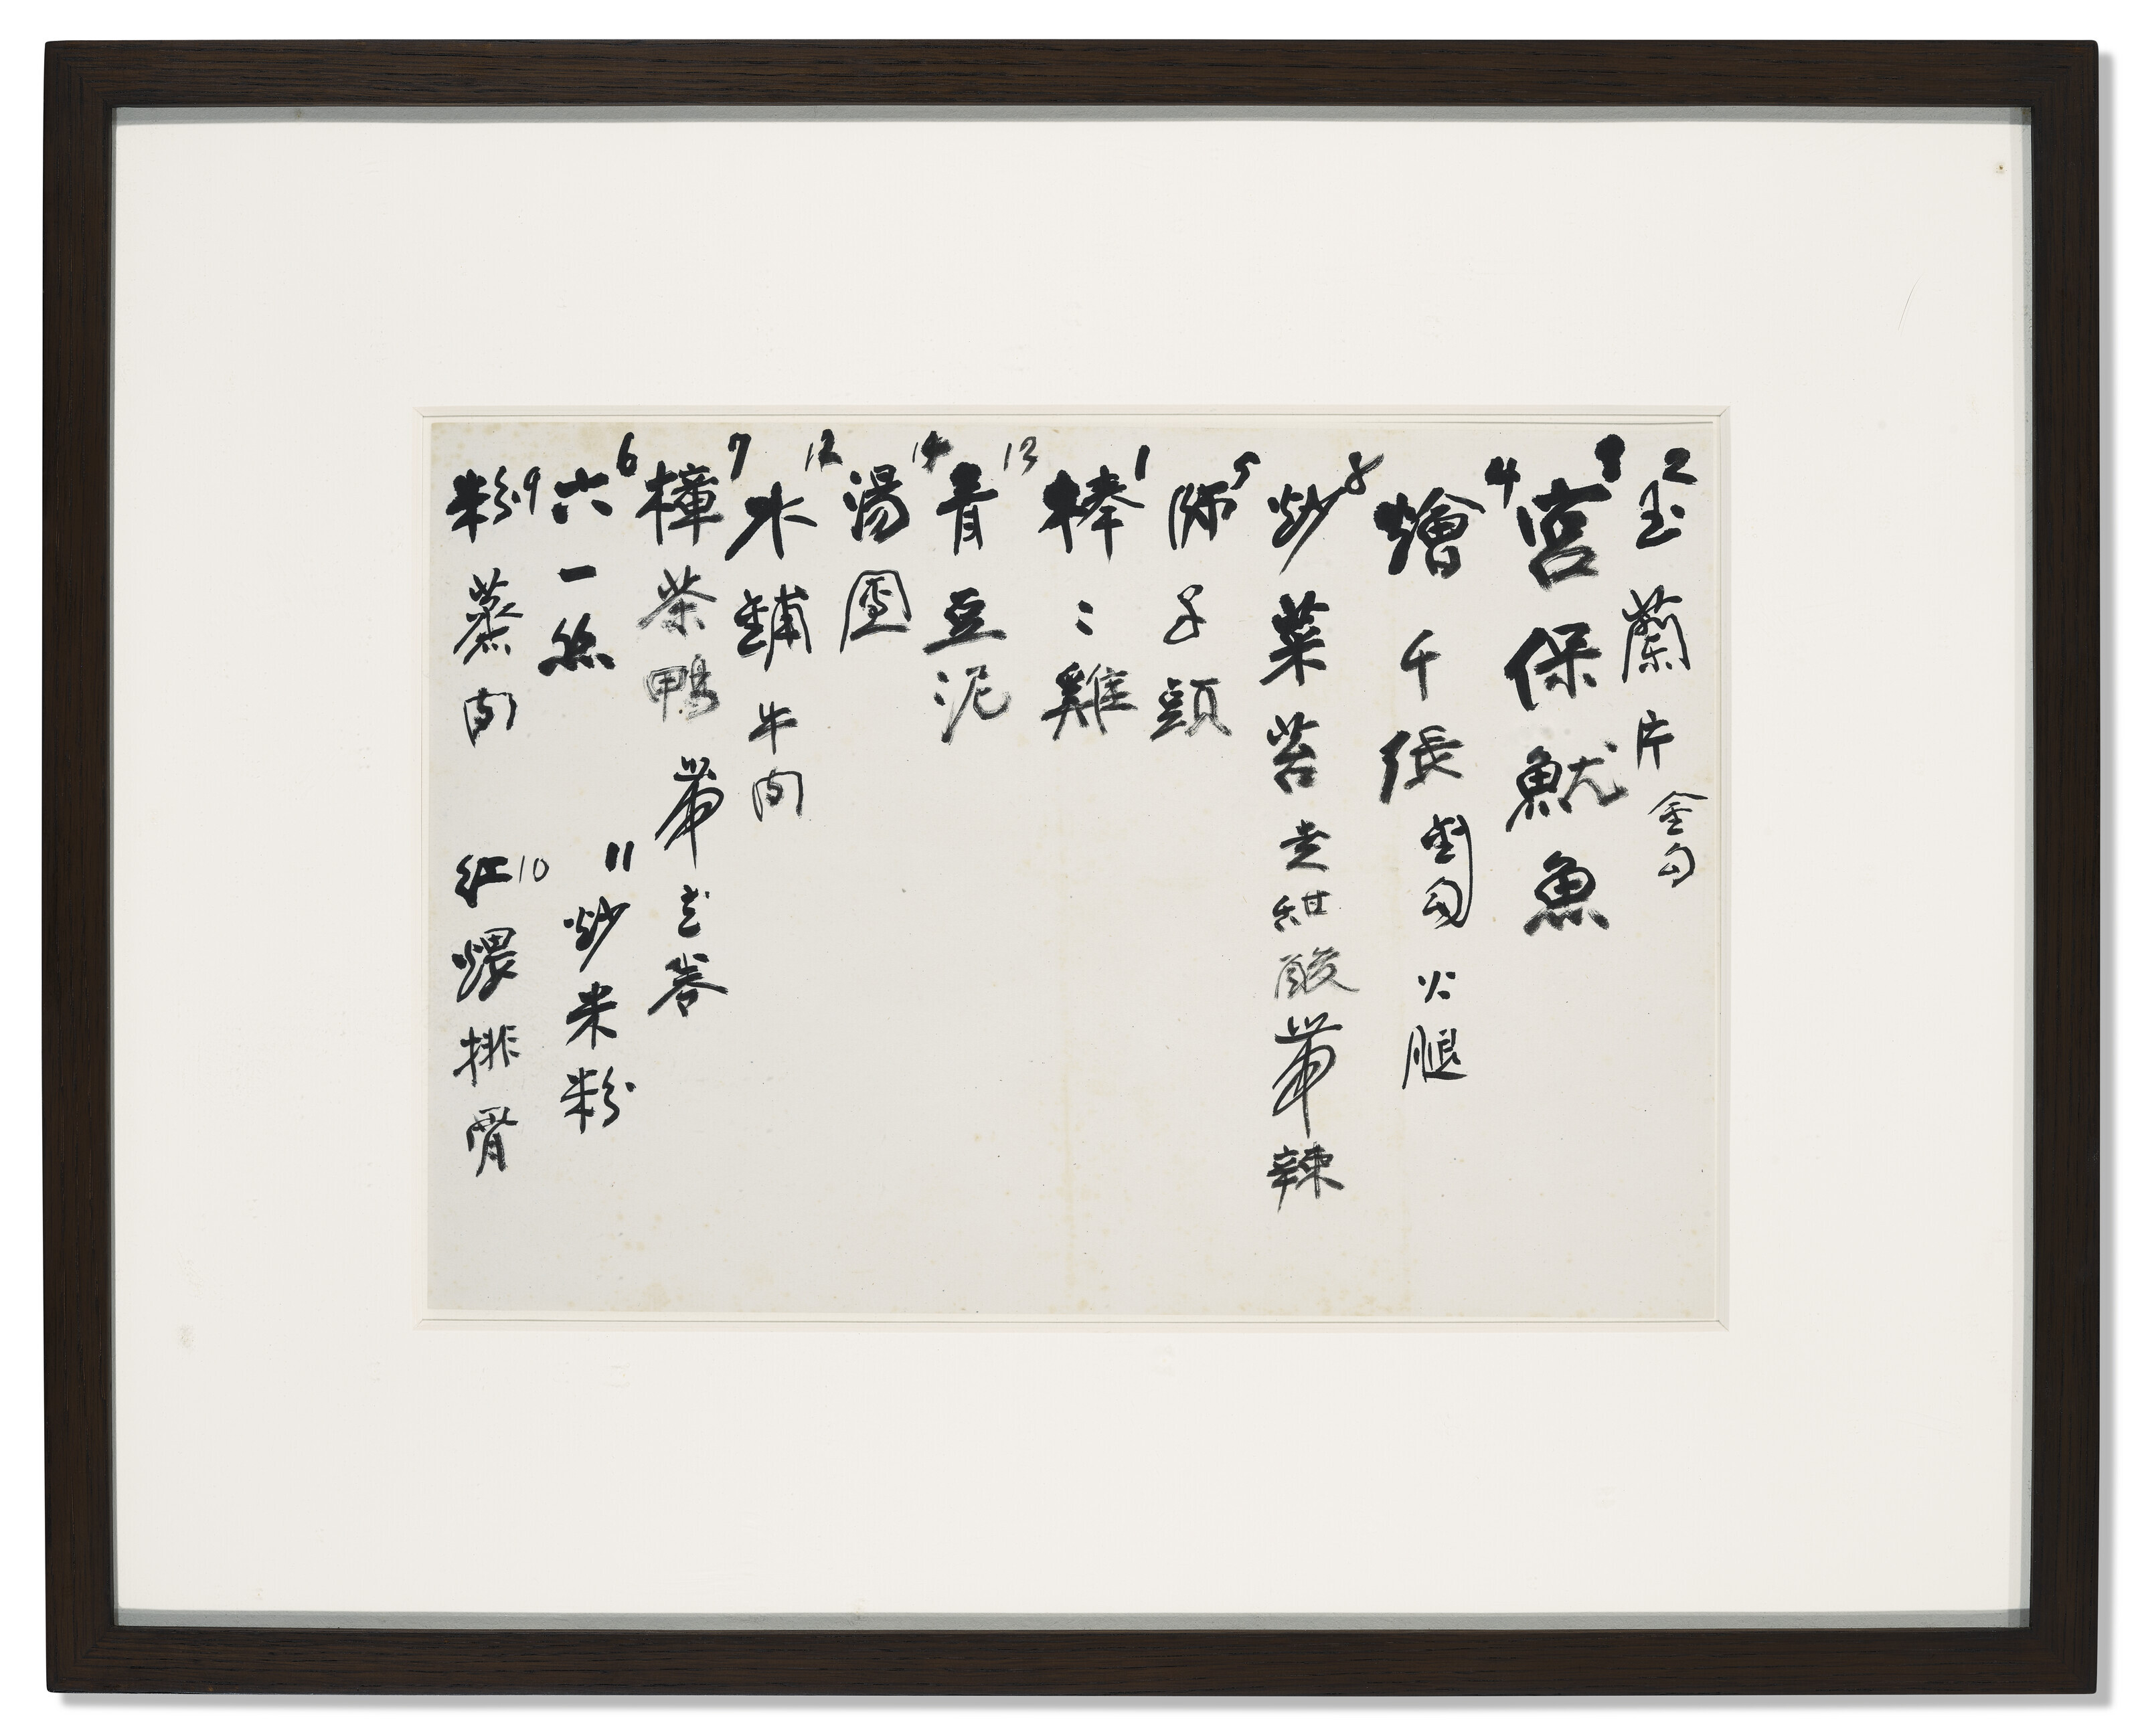 2 玉蘭片 金勾
3 宮保魷魚
4 燴千張 金勾 火腿
8 炒菜苔 走紺酸帶辣
5 獅子頭
1 棒〻雞
13 青豆泥
14 湯圓
12 水鋪牛肉
7 樟茶鴨 帶卷
6 六一絲
11 炒米粉
9 粉蒸肉
10 紅煨排骨